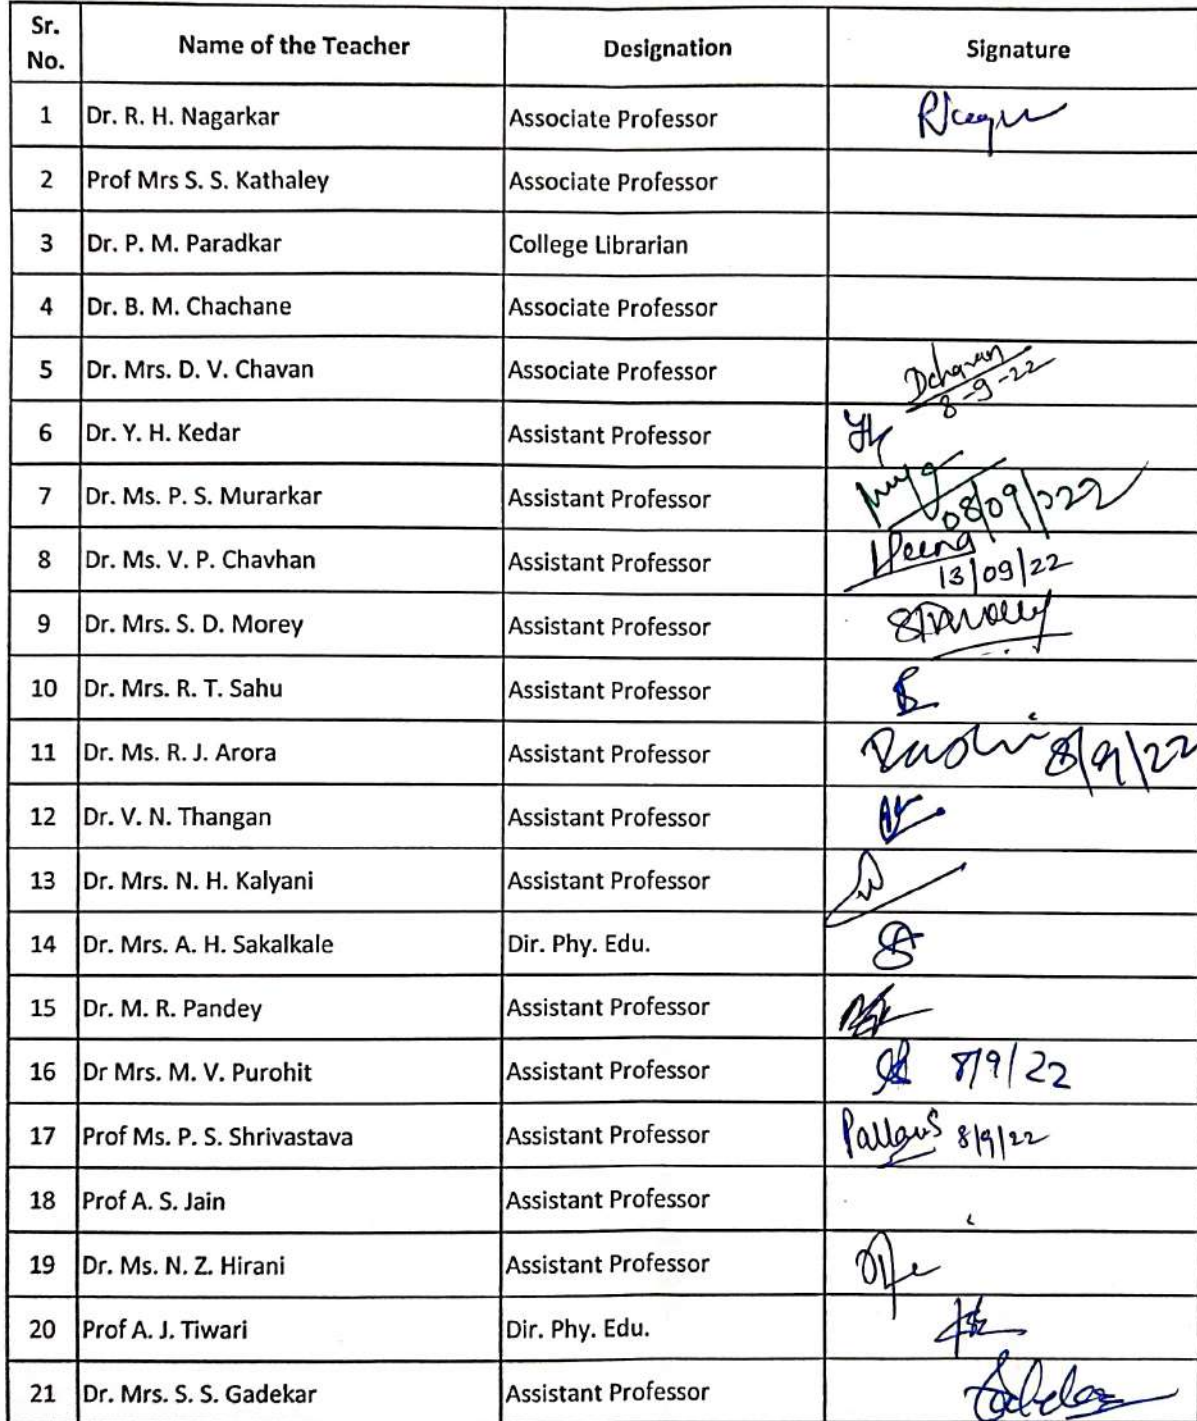 Sr. No. Name of the Teacher Designation Signature
1 Dr. R. H. Nagarkar Associate Professor
2 Prof Mrs S. S. Kathaley Associate Professor
3 Dr. P. M. Paradkar College Librarian
4 Dr. B. M. Chachane Associate Professor
5 Dr. Mrs. D. V. Chavan Associate Professor Dchavan
8-9-22
6 Dr. Y. H. Kedar Assistant Professor
7 Dr. Ms. P. S. Murarkar Assistant Professor 08/09/2022
8 Dr. Ms. V. P. Chavhan Assistant Professor
13/09/22
9 Dr. Mrs. S. D. Morey Assistant Professor
10 Dr. Mrs. R. T. Sahu Assistant Professor
11 Dr. Ms. R. J. Arora Assistant Professor 8/9/22
12 Dr. V. N. Thangan Assistant Professor
13 Dr. Mrs. N. H. Kalyani Assistant Professor
14 Dr. Mrs. A. H. Sakalkale Dir. Phy. Edu.
15 Dr. M. R. Pandey Assistant Professor
16 Dr Mrs. M. V. Purohit Assistant Professor 8/9/22
17 Prof Ms. P. S. Shrivastava Assistant Professor 8/9/22
18 Prof A. S. Jain Assistant Professor
19 Dr. Ms. N. Z. Hirani Assistant Professor
20 Prof A. J. Tiwari Dir. Phy. Edu.
21 Dr. Mrs. S. S. Gadekar Assistant Professor